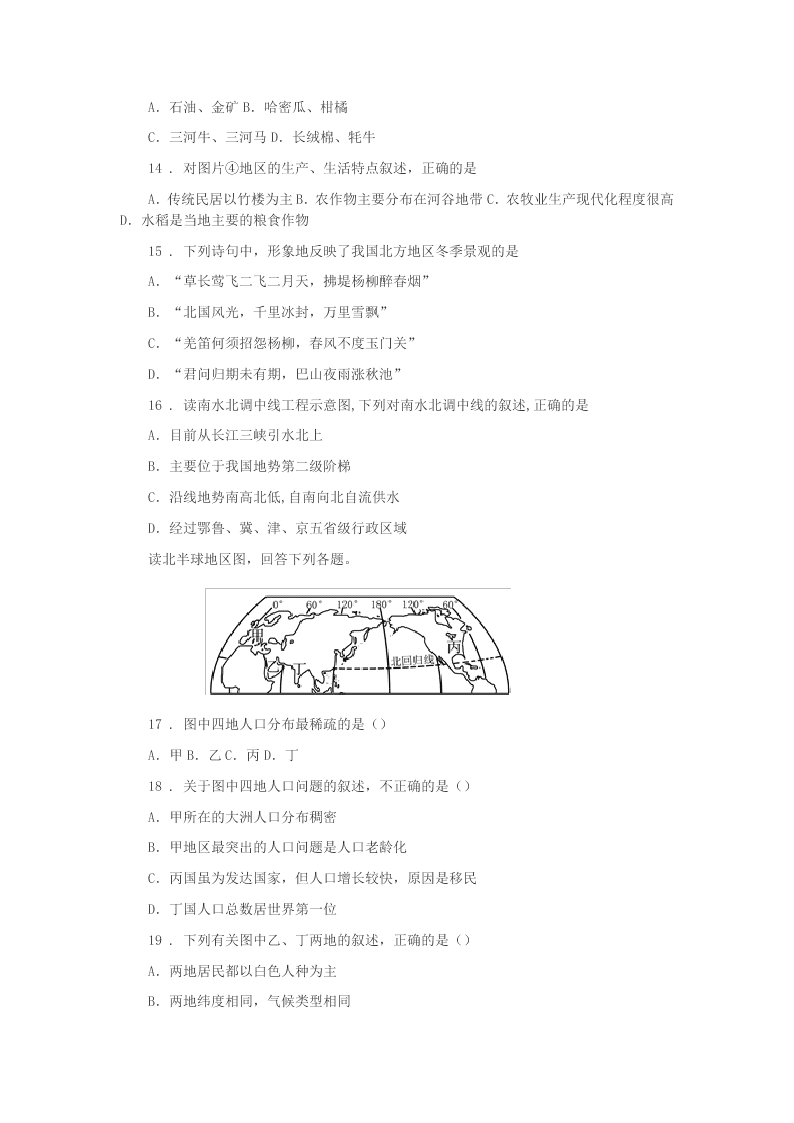 A．石油、金矿 B．哈密瓜、柑橘
C．三河牛、三河马 D．长绒棉、牦牛
14 ．对图片④地区的生产、生活特点叙述，正确的是
A．传统民居以竹楼为主 B．农作物主要分布在河谷地带 C．农牧业生产现代化程度很高
D．水稻是当地主要的粮食作物
15 ．下列诗句中，形象地反映了我国北方地区冬季景观的是
A．“草长莺飞二飞二月天，拂堤杨柳醉春烟”
B．“北国风光，千里冰封，万里雪飘”
C．“羌笛何须招怨杨柳，春风不度玉门关”
D．“君问归期未有期，巴山夜雨涨秋池”
16 ．读南水北调中线工程示意图,下列对南水北调中线的叙述,正确的是
A．目前从长江三峡引水北上
B．主要位于我国地势第二级阶梯
C．沿线地势南高北低,自南向北自流供水
D．经过鄂鲁、冀、津、京五省级行政区域
读北半球地区图，回答下列各题。
0° 60° 120° 180° 120° 60°
甲
丙
北回归线
丁
17 ．图中四地人口分布最稀疏的是（）
A．甲 B．乙 C．丙 D．丁
18 ．关于图中四地人口问题的叙述，不正确的是（）
A．甲所在的大洲人口分布稠密
B．甲地区最突出的人口问题是人口老龄化
C．丙国虽为发达国家，但人口增长较快，原因是移民
D．丁国人口总数居世界第一位
19 ．下列有关图中乙、丁两地的叙述，正确的是（）
A．两地居民都以白色人种为主
B．两地纬度相同，气候类型相同